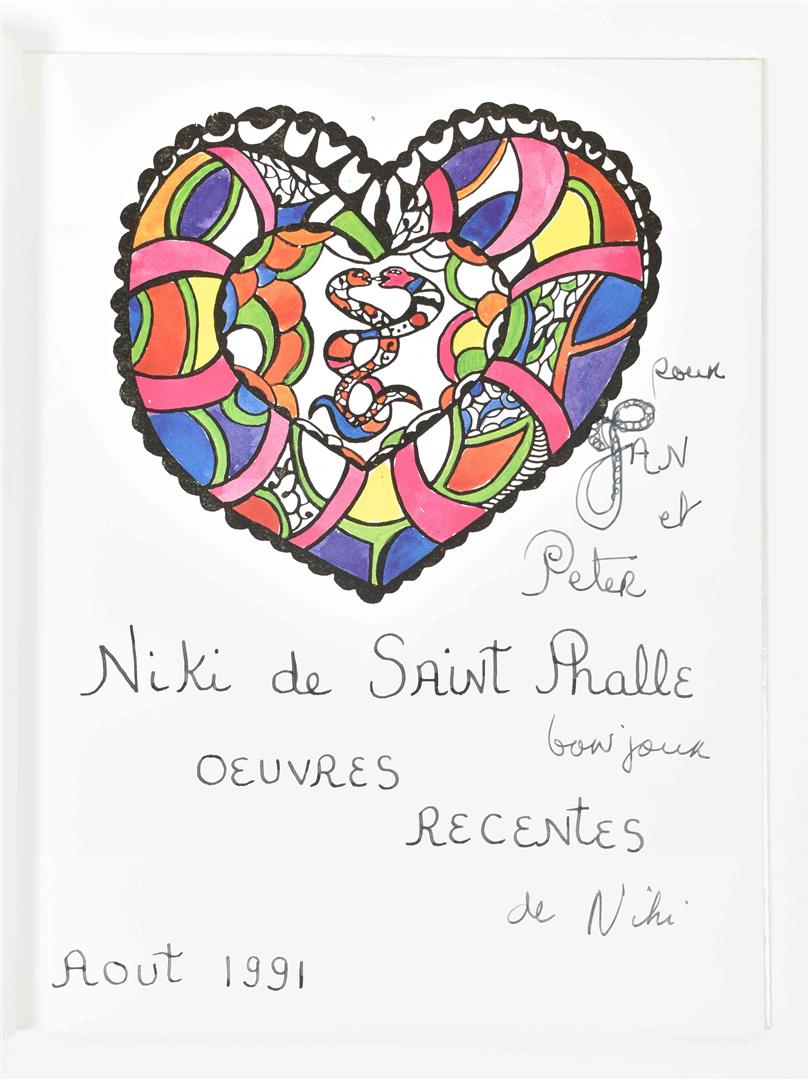 pour
JAN
et
Peter
Niki de SAINT Phalle
bonjour
OEUVRES
RECENTES
de Niki
Aout 1991